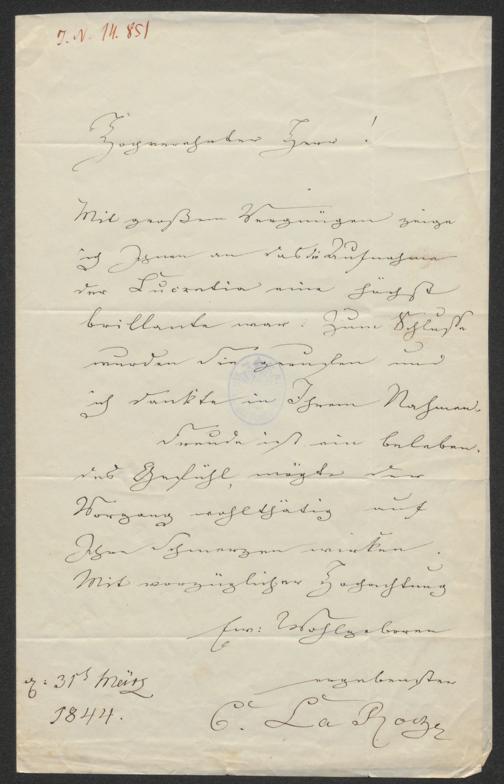 J. N. 14.851
Hochverehrter Herr!
Mit großem Vergnügen zeige
ich Ihnen an das die Aufnahme
der Lucretia eine höchst
brillante war. Zum Schluße
wurden Sie gerufen und
ich dankte in Ihrem Nahmen.
Freude ist ein beleben-
des Gefühl, mögte der
Vorgang wohlthätig auf
Ihre Schmerzen wirken.
Mit vorzüglicher Hochachtung
Ew: Wohlgeboren
ergebenster
31t März
1844.
C. La Roche